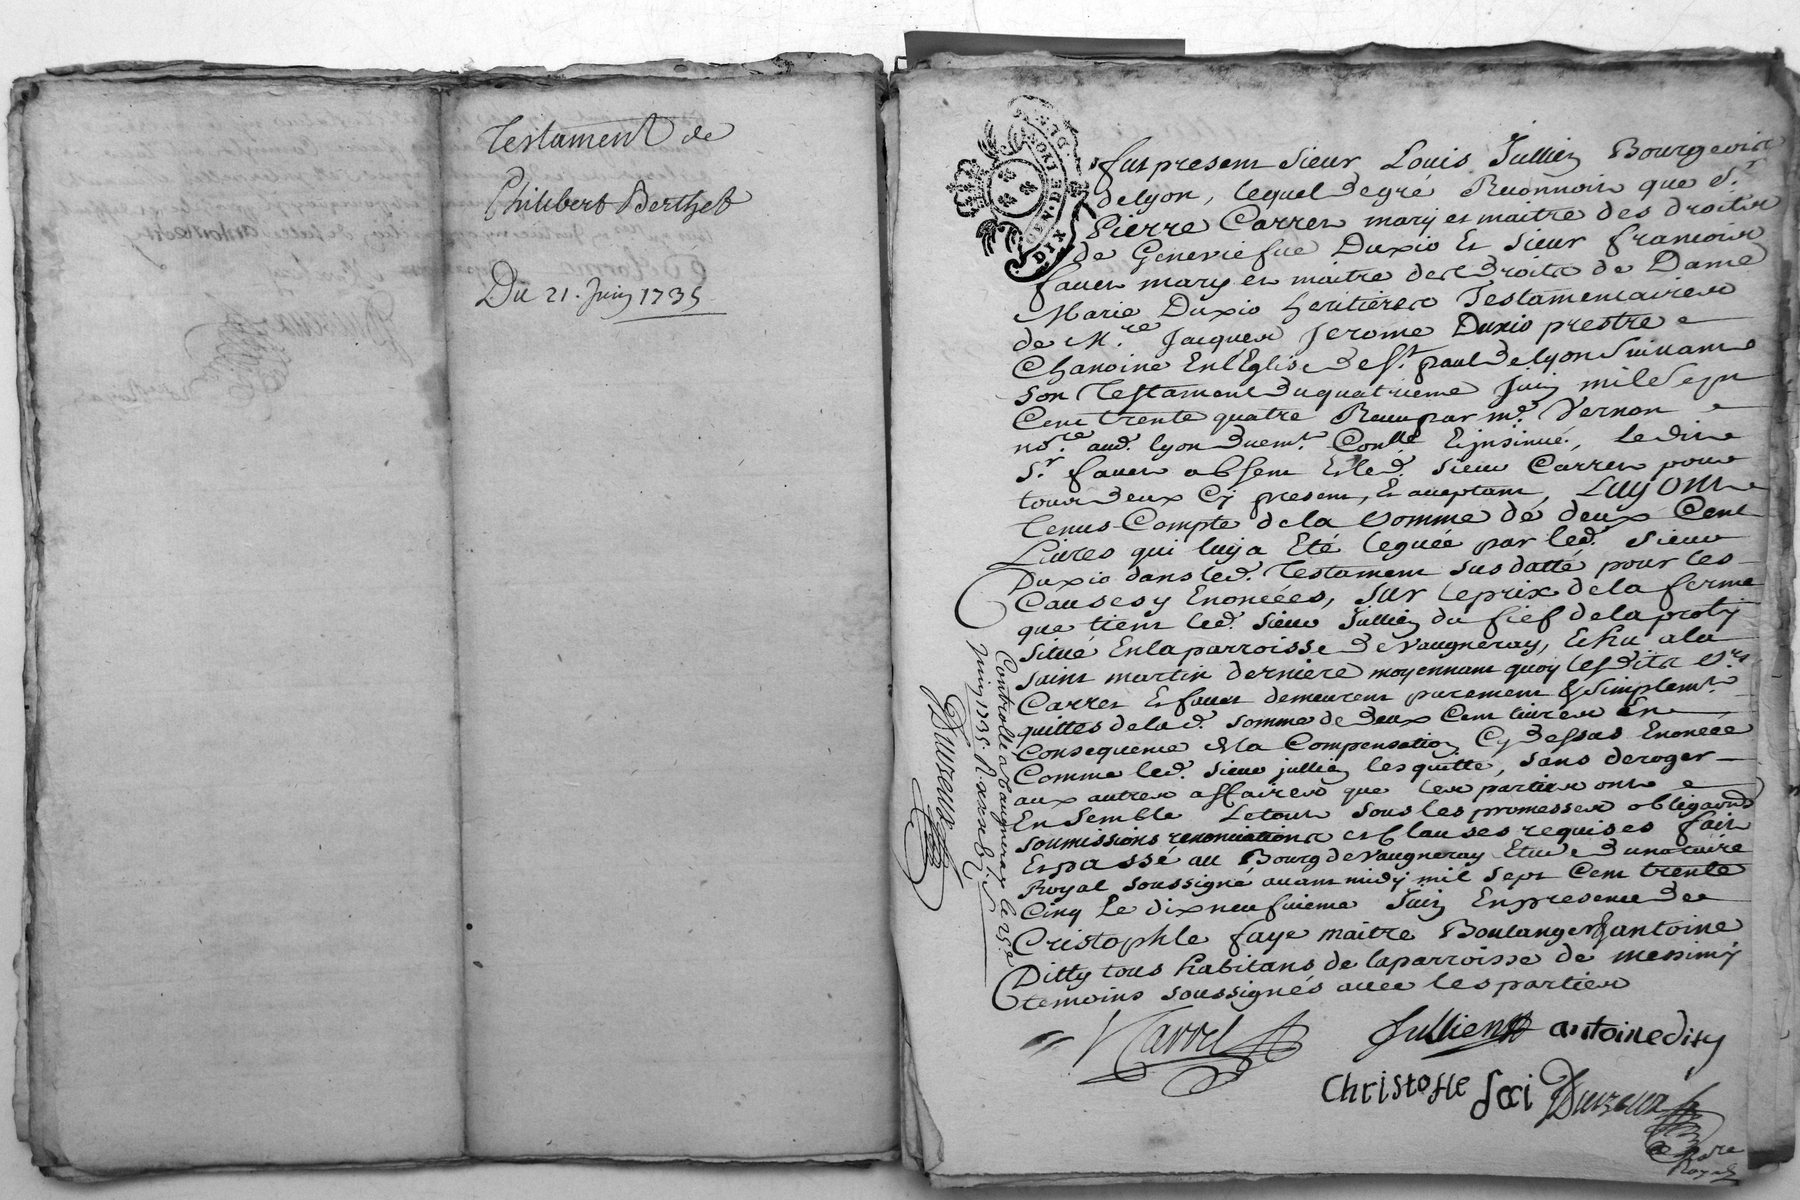 Testament de
Philibert Berthet
Du 21. Juin 1735
GEN. DE LYON
DIX DEN.
fut present Sieur Louis Jullien Bourgeois
de lyon, lequel de gré Reconnoit que Sr.
Pierre Carret mary et maitre des droits
de Geneviefve Duxio Et Sieur francois
favet mary et maitre des droits de Dame
Marie Duxio heritieres Testamentaires
de Mre. Jacques Jerome Duxio prestre
Chanoine En l'Eglise de St. paul de lyon Suivant
son Testament du quatrieme Juin mil Sept
Cent trente quatre Receu par me. Vernon
nore. aud. lyon duemt. Conllé Et insinué, Ledit
Sr. favet absent Et led. Sieur Carret pour
tous deux Cy present, Et aceptant, Luy ont
Tenus Compte de la Somme de deux Cent
Livres qui luy a Eté leguée par led. Sieur
Duxio dans led. Testament Sus datté pour les
Causes y Enoncées, Sur le prix de la ferme
que tient led. Sieur Jullien du fief de la proty
Situé En la parroisse de Vaugneray, Echu a la
saint martin derniere moyennant quoy lesdits Srs
Carret Et favet demeurent purement & Simplemt.
quittes de lad. Somme de deux Cent livres En
Consequence de la Compensation Cy dessus Enoncée
Comme led. Sieur jullien les quitte, sans deroger
aux autres affaires que les parties ont
Ensemble Le tout Sous les promesses obligaons
soumissions renonciations et Clauses requises fait
Et passé au Bourg de Vaugneray Etude du notaire
Royal soussigné avant midy mil Sept Cent trente
Cinq Le dix neufvieme Juin En presence de
Cristophle faye maitre Boulanger & antoine
Ditty tous habitans de la parroisse de messimy
temoins soussignés avec les parties
Controllé a Vaugneray le 25e
Juin 1735. R
Carret Jullien antoine disy
Christofle foei
Nore
Royal